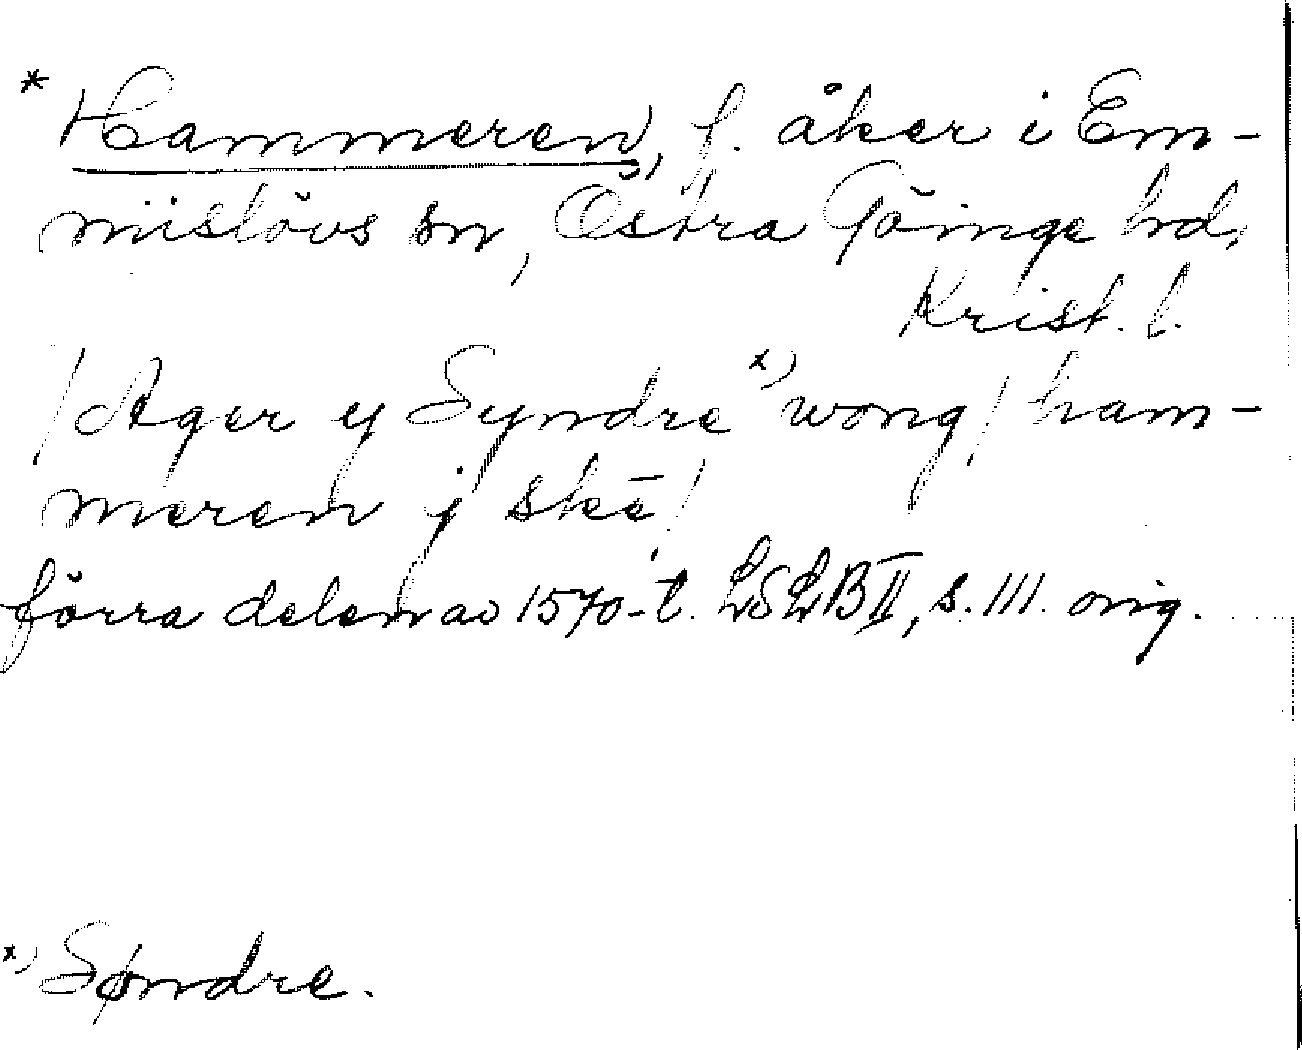 * Hammeren, f. åker i Em-
mislövs sn, Östra Göinge hd,
Krist. l.
/Ager y Syndre x) wong/ ham-
meren j skē/
förra delen av 1570-t. LSLB II, s. 111. orig.
x) Søndre.